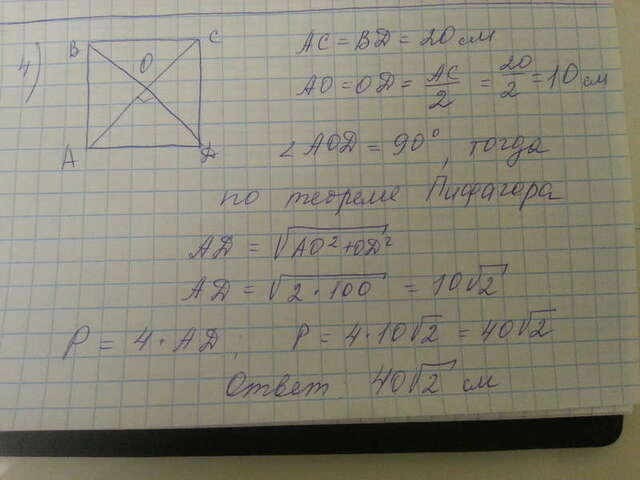 4)
B C
O
A D
AC = BD = 20 см
AO = OD = AC/2 = 20/2 = 10 см
∠ AOD = 90°, тогда
по теореме Пифагора
AD = √(AO² + OD²)
AD = √(2 · 100) = 10√2
P = 4 · AD; P = 4 · 10√2 = 40√2
Ответ 40√2 см